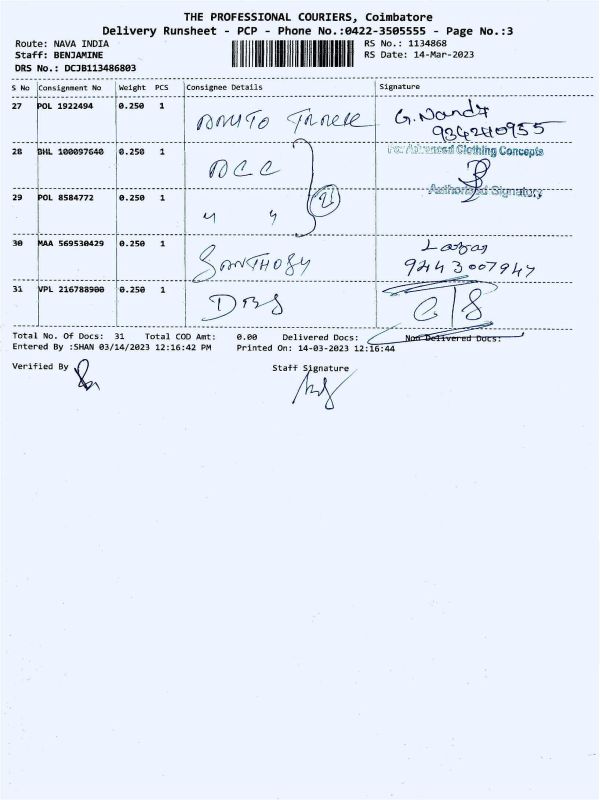 THE PROFESSIONAL COURIERS, Coimbatore
Delivery Runsheet - PCP - Phone No.:0422-3505555 - Page No.:3
Route: NAVA INDIA
Staff: BENJAMINE
DRS No.: DCJB113486803
RS No.: 1134868
RS Date: 14-Mar-2023
S No Consignment No Weight PCS Consignee Details Signature
27 POL 1922494 0.250 1
G. Nandi
934240955
28 BHL 100097640 0.250 1 ACC
For Advanced Clothing Concepts
Authorised Signatory
29 POL 8584772 0.250 1 " "
30 MAA 569530429 0.250 1
9443007947
31 VPL 216788900 0.250 1 DBS
Total No. Of Docs: 31 Total COD Amt: 0.00 Delivered Docs: Non Delivered Docs:
Entered By :SHAN 03/14/2023 12:16:42 PM Printed On: 14-03-2023 12:16:44
Verified By
Staff Signature